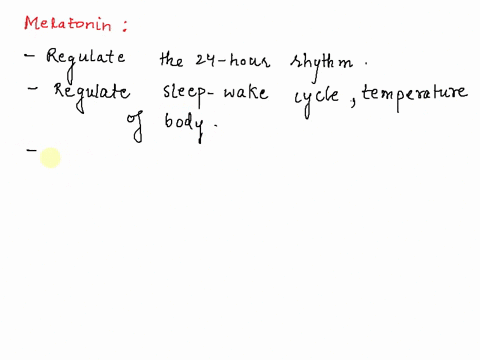 Melatonin :
- Regulate the 24-hour rhythm.
- Regulate sleep-wake cycle, temperature
of body.
-